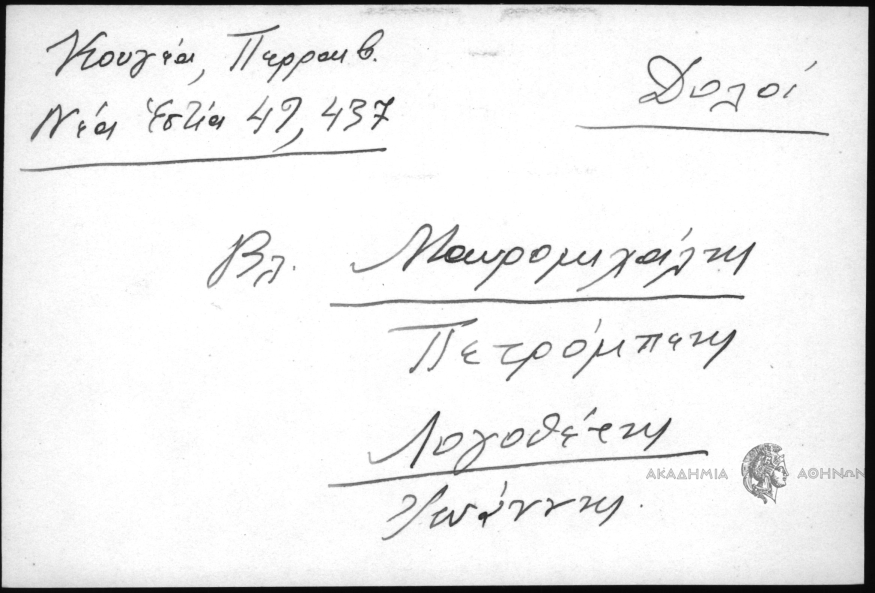 Κουγέα, Περραιβ.
Νέα Ἑστία 49, 437
Δολοί
Βλ. Μαυρομιχάλης
Πετρόμπεης
Λογοθέτης
Ἰωάννης.
ΑΚΑΔΗΜΙΑ ΑΘΗΝΩΝ